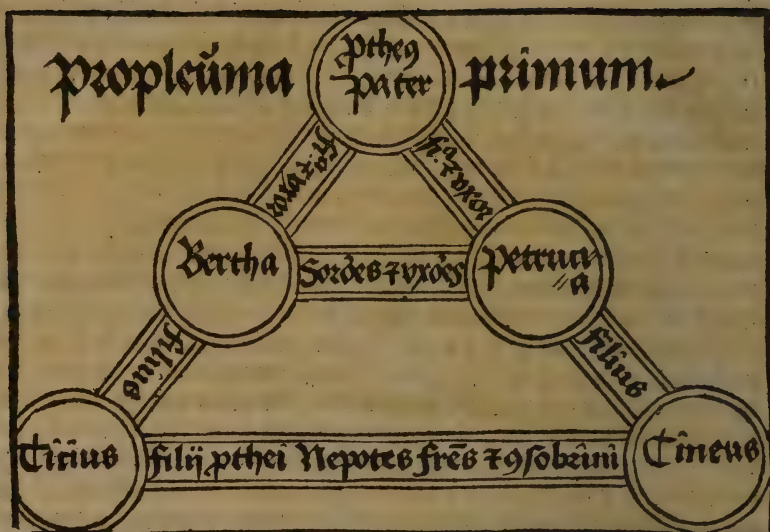 Propleūma primum
ptheꝰ
Pater
fi.ª ⁊ vxor
fi.ª ⁊ vxor
Bertha
Sorōes ⁊ vxōes
Petruci⸗
a
filius
filius
Ticius
filij ꝓthei Nepotes frēs ⁊ ꝯsobrini
Cineus